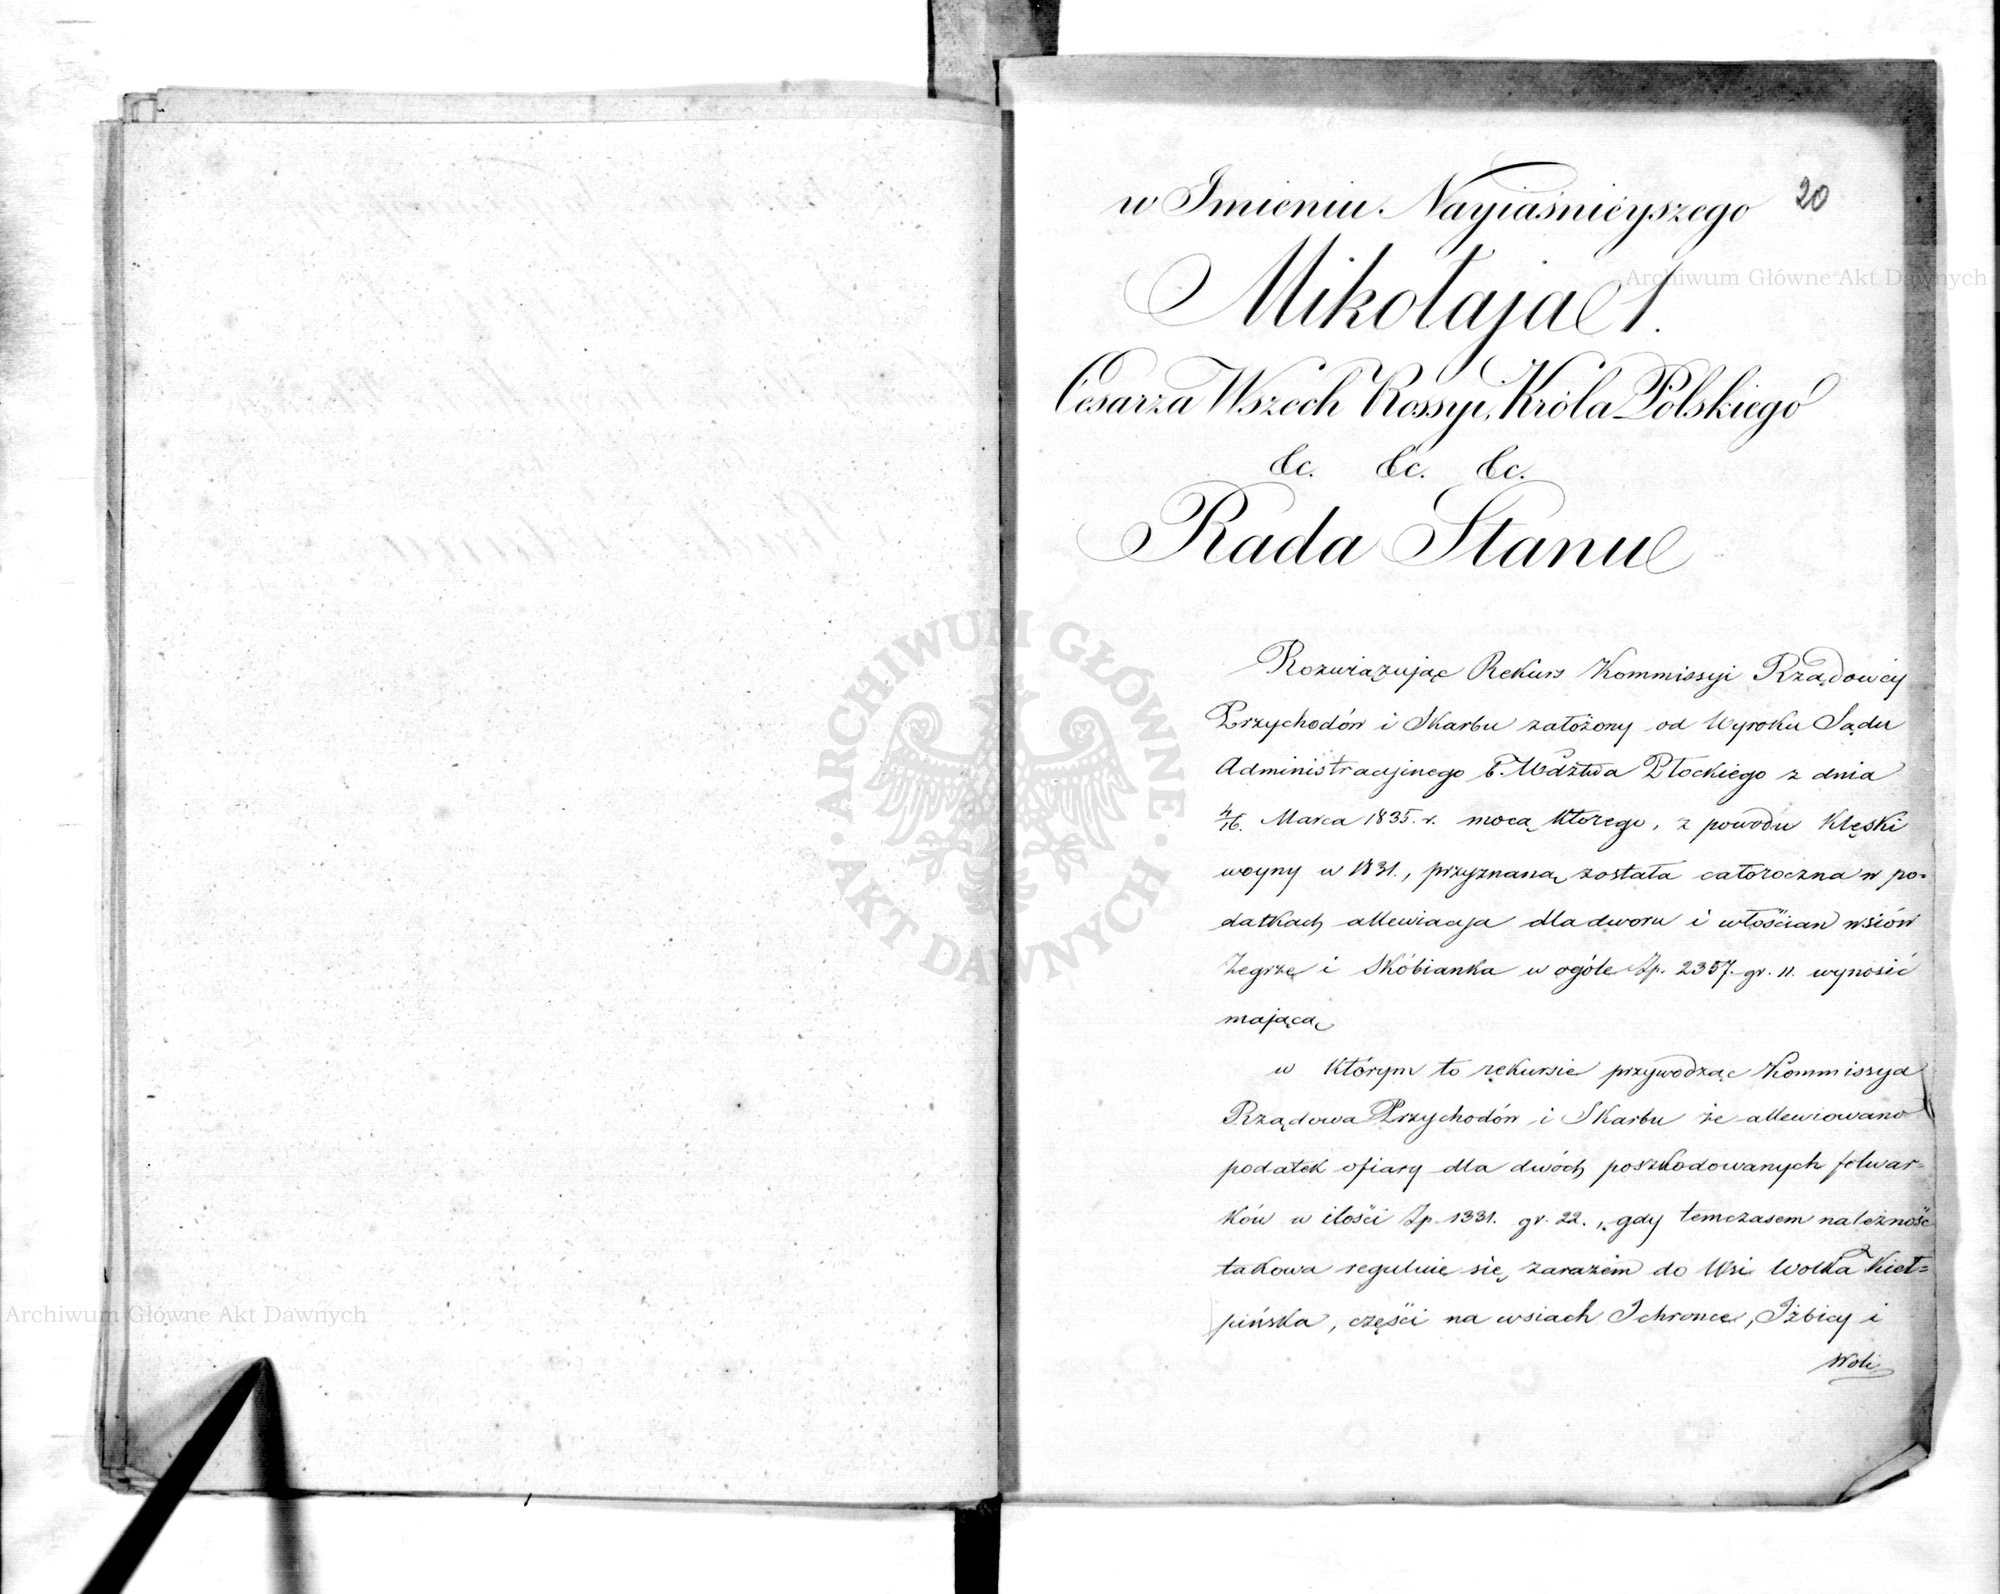 w Imieniu Nayiaśnieyszego
20
Mikołaja 1.
Cesarza Wszech Rossyi, Króla Polskiego
&c. &c. &c.
Rada Stanu
Rozwiązując Rekurs Kommissyi Rządowéy
Przychodów i Skarbu założony od Wyroku Sądu
Administracyjnego b. Wdztwa Płockiego z dnia
4/16. Marca 1835. r. mocą którego, z powodu klęski
woyny w 1831., przyznaną została całoroczna w po-
datkach allewiacya dla dworu i włościan wsiów
Zegrze i Skóbianka w ogóle Zp. 2357. gr. 11. wynosić
mającą
w którym to rekursie przywodząc Kommissya
Rządowa Przychodów i Skarbu że allewiowano
podatek ofiary dla dwóch poszkodowanych folwar=
ków w ilości Zp. 1331. gr. 22., gdy temczasem należność
takowa reguluie się zarazem do Wsi Wolka Kieł=
pińska, części na wsiach Ichronce, Iżbicy i
Woli
Archiwum Główne Akt Dawnych
Archiwum Główne Akt Dawnych
ARCHIWUM GŁÓWNE · AKT DAWNYCH ·